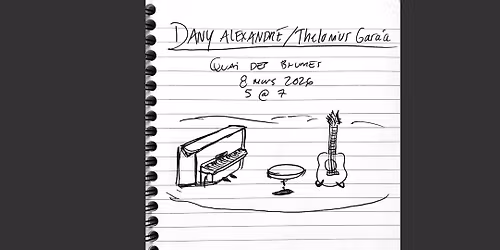 DANY ALEXANDRE / Thelonius Garcia
QUAI DES BRUMES
8 MARS 2026
5 @ 7